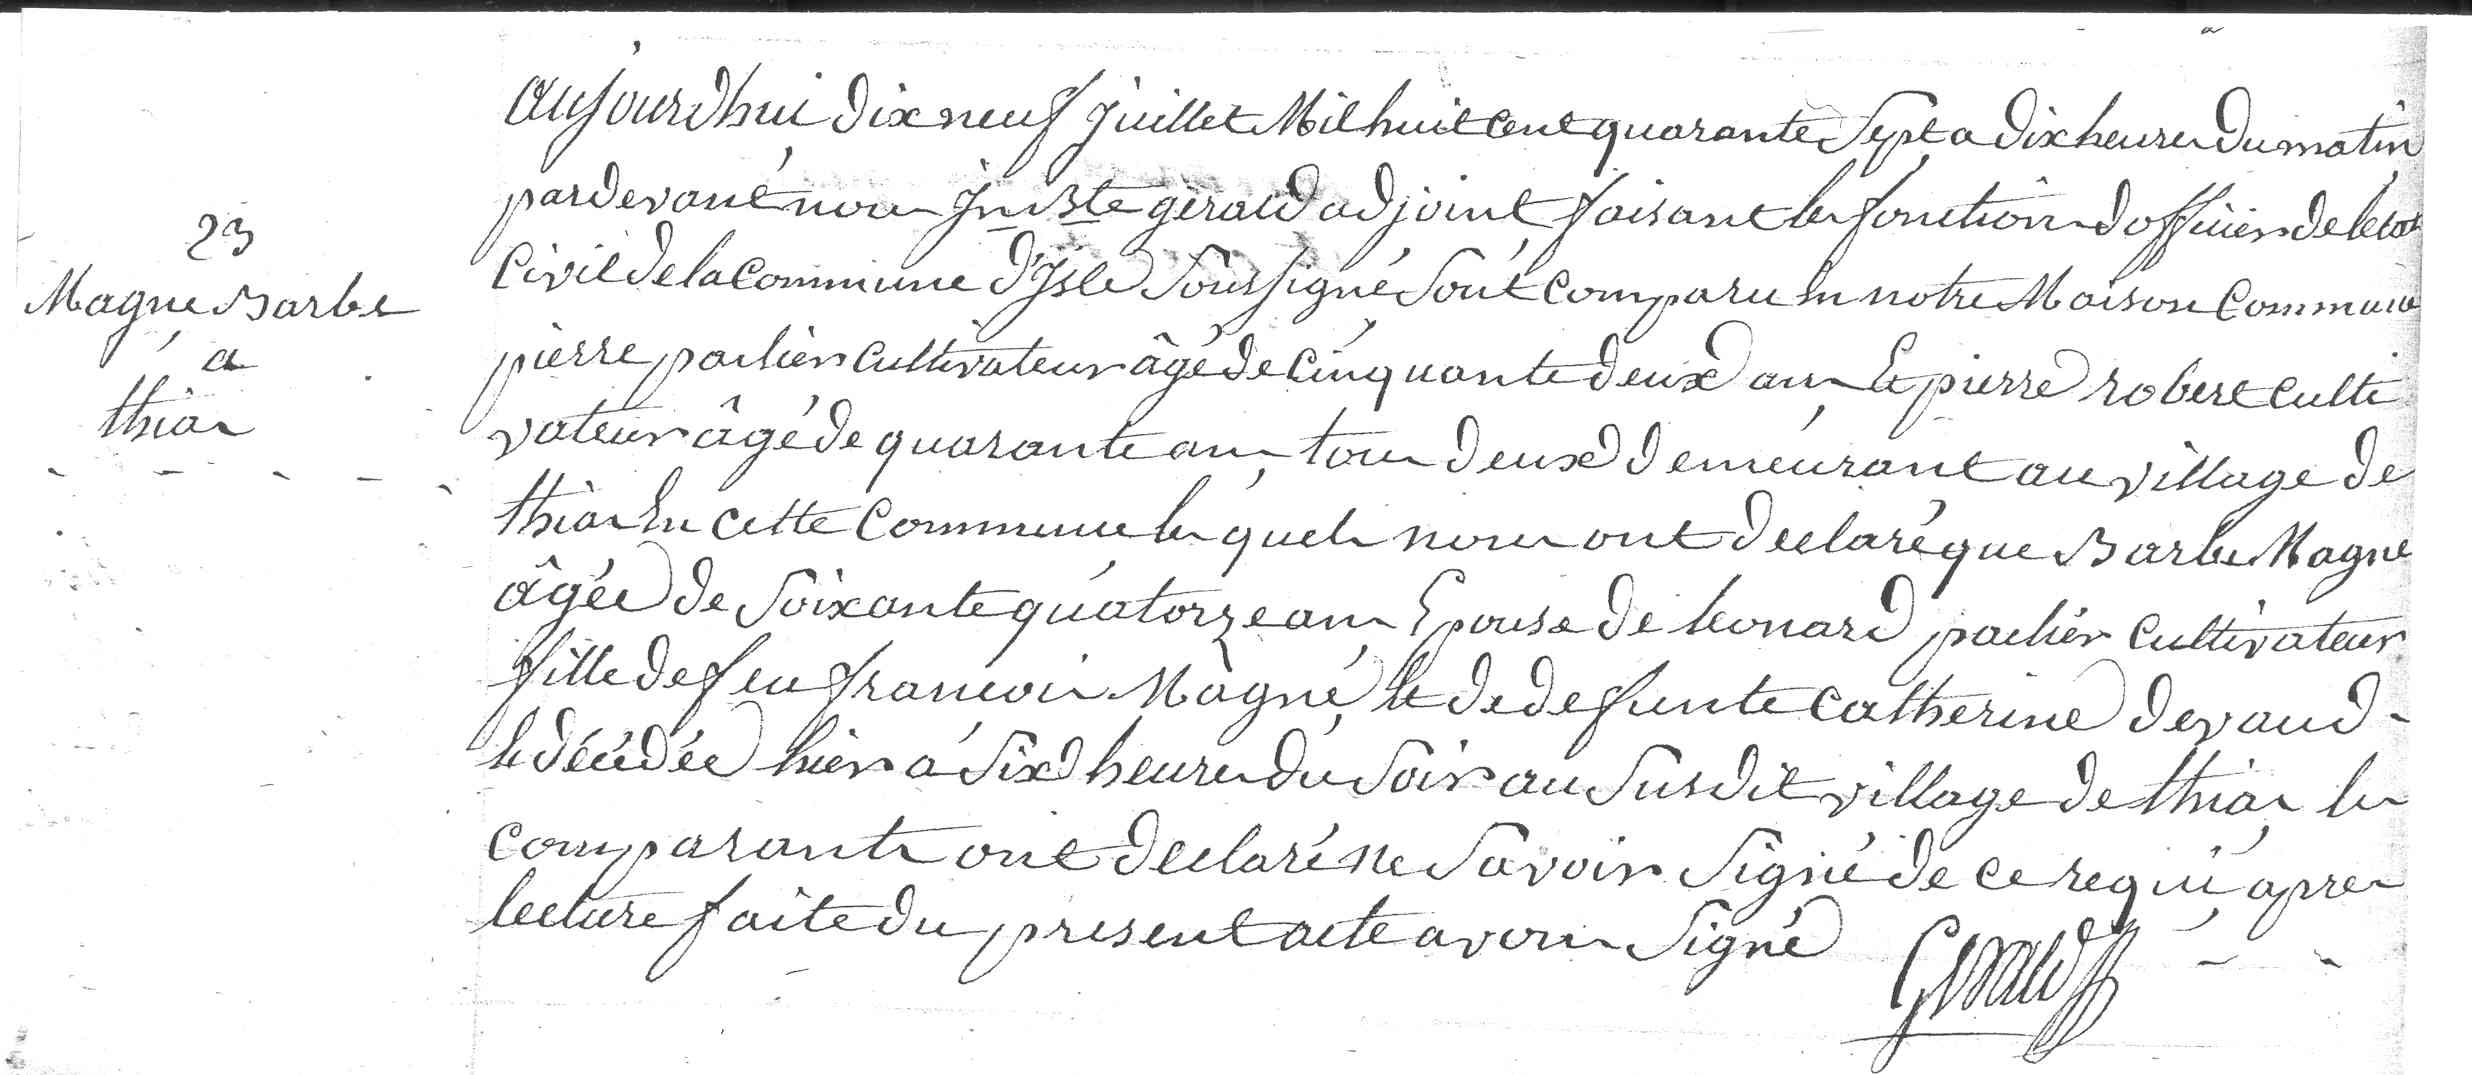 23
Magne Barbe
a
thias
aujourdhui dix neuf juillet Mil huit cent quarante Sept a dix heures du matin
pardevant nous Jn Bte géraud adjoint faisant les fonctions dofficier de letat
Civil de la Commune d'Isle Soussigné Sont Comparu En notre Maison Commune
pierre parlier Cultivateur âgé de Cinquante deux ans Et pierre robert Culti
vateur âgé de quarante ans tous deux demeurant au village de
thias En cette Commune lesquels nous ont declaré que Barbe Magne
âgée de Soixante quatorze ans Epouse de leonard parlier Cultivateur
fille de feu francois Magné Et de defunte Catherine devaud
Et décédée hier à Six heures du Soir au Susdit village de thias les
Comparants ont declaré ne Savoir Signé de ce requi apres
lecture faite du present acte avons Signé
Geraud